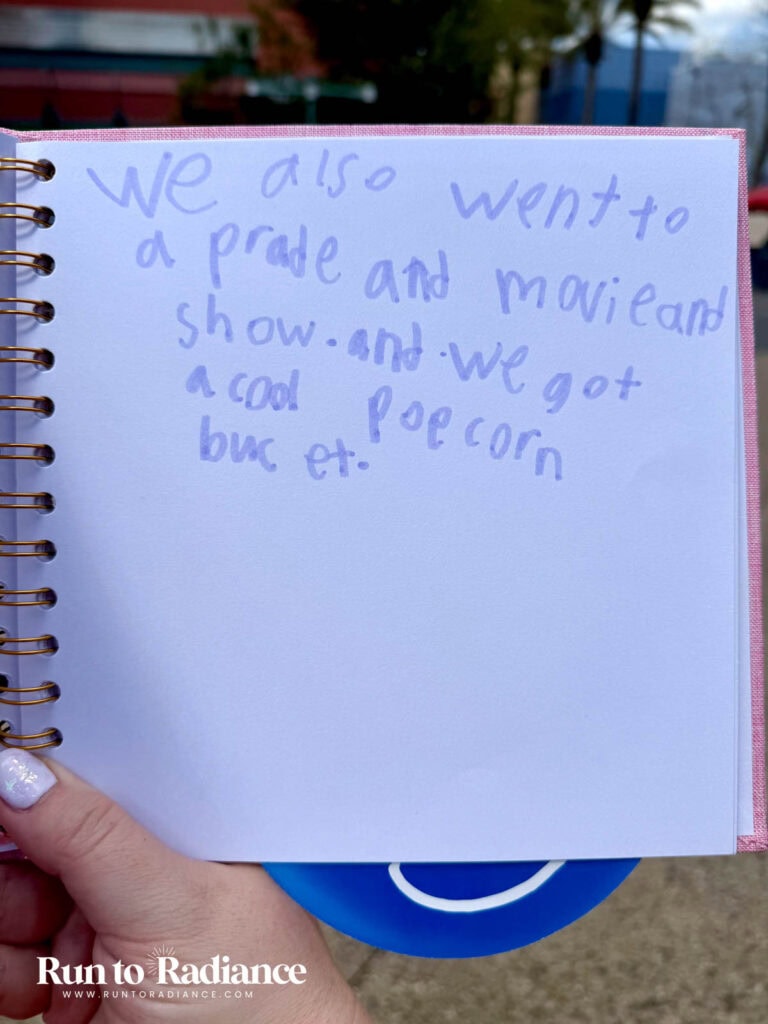 We also went to
a prade and movie and
show. and. we got
a cool popcorn
buc et.
Run to Radiance
WWW.RUNTORADIANCE.COM